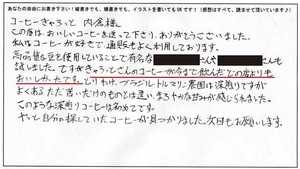 あなたの自由にお書き下さい!縦書きでも、横書きでも、イラストを書いてもOKです!(感想はすべて、読ませて頂いています♪)
コーヒーきゃろっと 内倉様
この度は、おいしいコーヒーを送って下さり、ありがとうございました。
私はコーヒーが好きで、通販もよく利用しております。
高品質な豆を使用していることで有名な さんや さんも
試しました。ですがきゃろっとさんのコーヒーが今まで飲んだどの店よりも
おいしかったです。とりわけ、ブラジルトルマリン農園は深煎りですが
よくあるただ苦いだけのものとは違い、まろやかな甘みが感じられました。
このような深煎りコーヒーは初めてです。
やっと自分の探していたコーヒーが見つかりました。次回もお願いします。